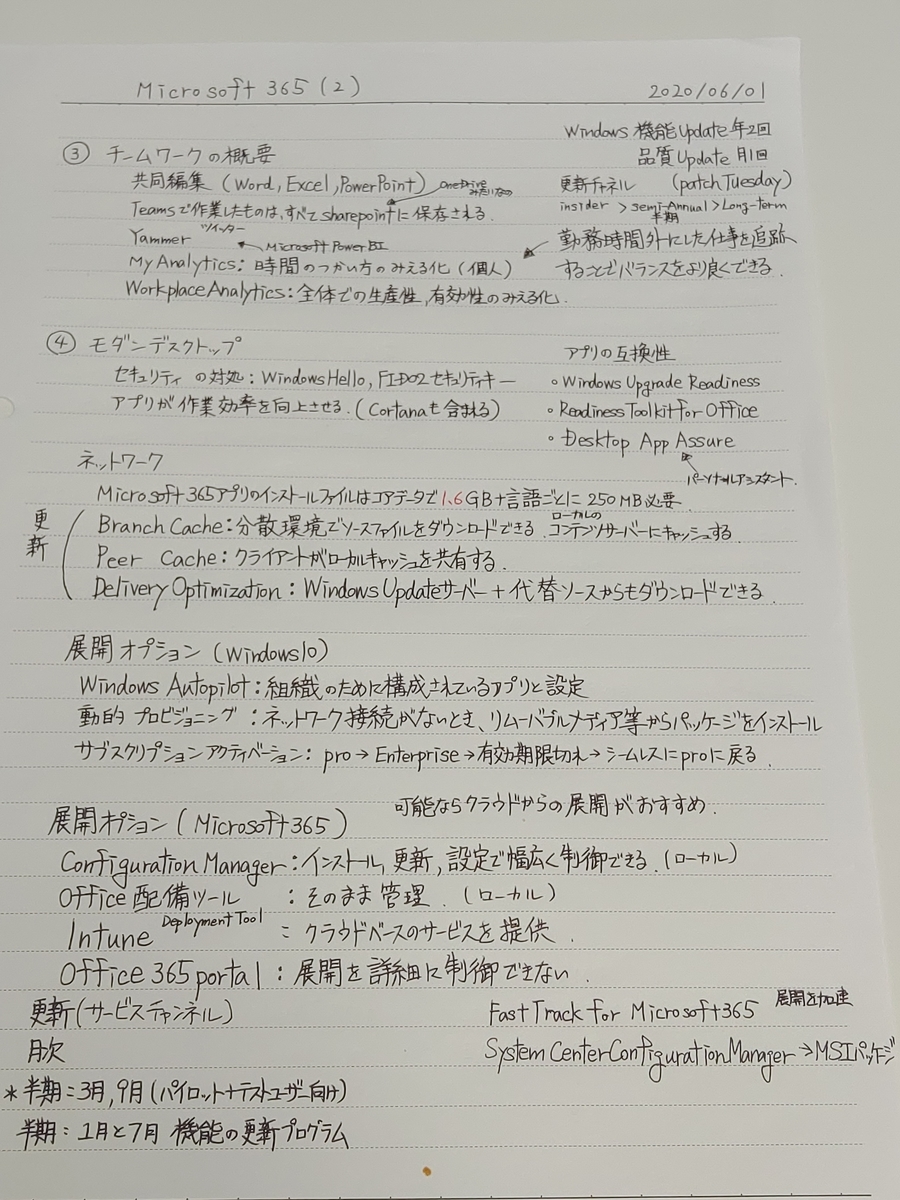 Microsoft 365 (2) 2020/06/01
Windows 機能Update 年2回
③ チームワークの概要 品質Update 月1回
共同編集 (Word, Excel, PowerPoint) OneDriveみたいなの 更新チャネル (patch Tuesday)
Teamsで作業したものは、すべてsharepointに保存される. insider > semi-Annual > Long-term
半期
ツイッター
Yammer Microsoft Power BI 勤務時間外にした仕事を追跡
MyAnalytics: 時間のつかい方のみえる化 (個人) することでバランスをより良くできる.
Workplace Analytics: 全体での生産性, 有効性のみえる化.
④ モダンデスクトップ アプリの互換性
セキュリティ の対処: Windows Hello, FIDO2 セキュリティキー ○ Windows Upgrade Readiness
アプリが作業効率を向上させる. (Cortanaも含まれる) ○ Readiness Toolkit for Office
○ Desktop App Assure
ネットワーク パーソナルアシスタント.
Microsoft 365アプリのインストールファイルはコアデータで1.6GB+言語ごとに250MB必要
更新 Branch Cache: 分散環境でソースファイルをダウンロードできる. ローカルのコンテンツサーバーにキャッシュする
Peer Cache: クライアントがローカルキャッシュを共有する.
Delivery Optimization: Windows Updateサーバー + 代替ソースからもダウンロードできる.
展開オプション (Windows10)
Windows Autopilot: 組織のために構成されているアプリと設定
動的プロビジョニング: ネットワーク接続がないとき、リムーバブルメディア等からパッケージをインストール
サブスクリプションアクティベーション: pro→Enterprise→有効期限切れ→シームレスにproに戻る.
可能ならクラウドからの展開がおすすめ.
展開オプション (Microsoft365)
Configuration Manager: インストール, 更新, 設定で幅広く制御できる. (ローカル)
Office 配備ツール : そのまま管理. (ローカル)
Deployment Tool
Intune : クラウドベースのサービスを提供.
Office 365 portal: 展開を詳細に制御できない.
更新(サービスチャンネル) FastTrack for Microsoft365 展開を加速
月次 System Center Configuration Manager→MSIパッケージ
*半期: 3月, 9月 (パイロット+テストユーザー向け)
半期: 1月と7月 機能の更新プログラム